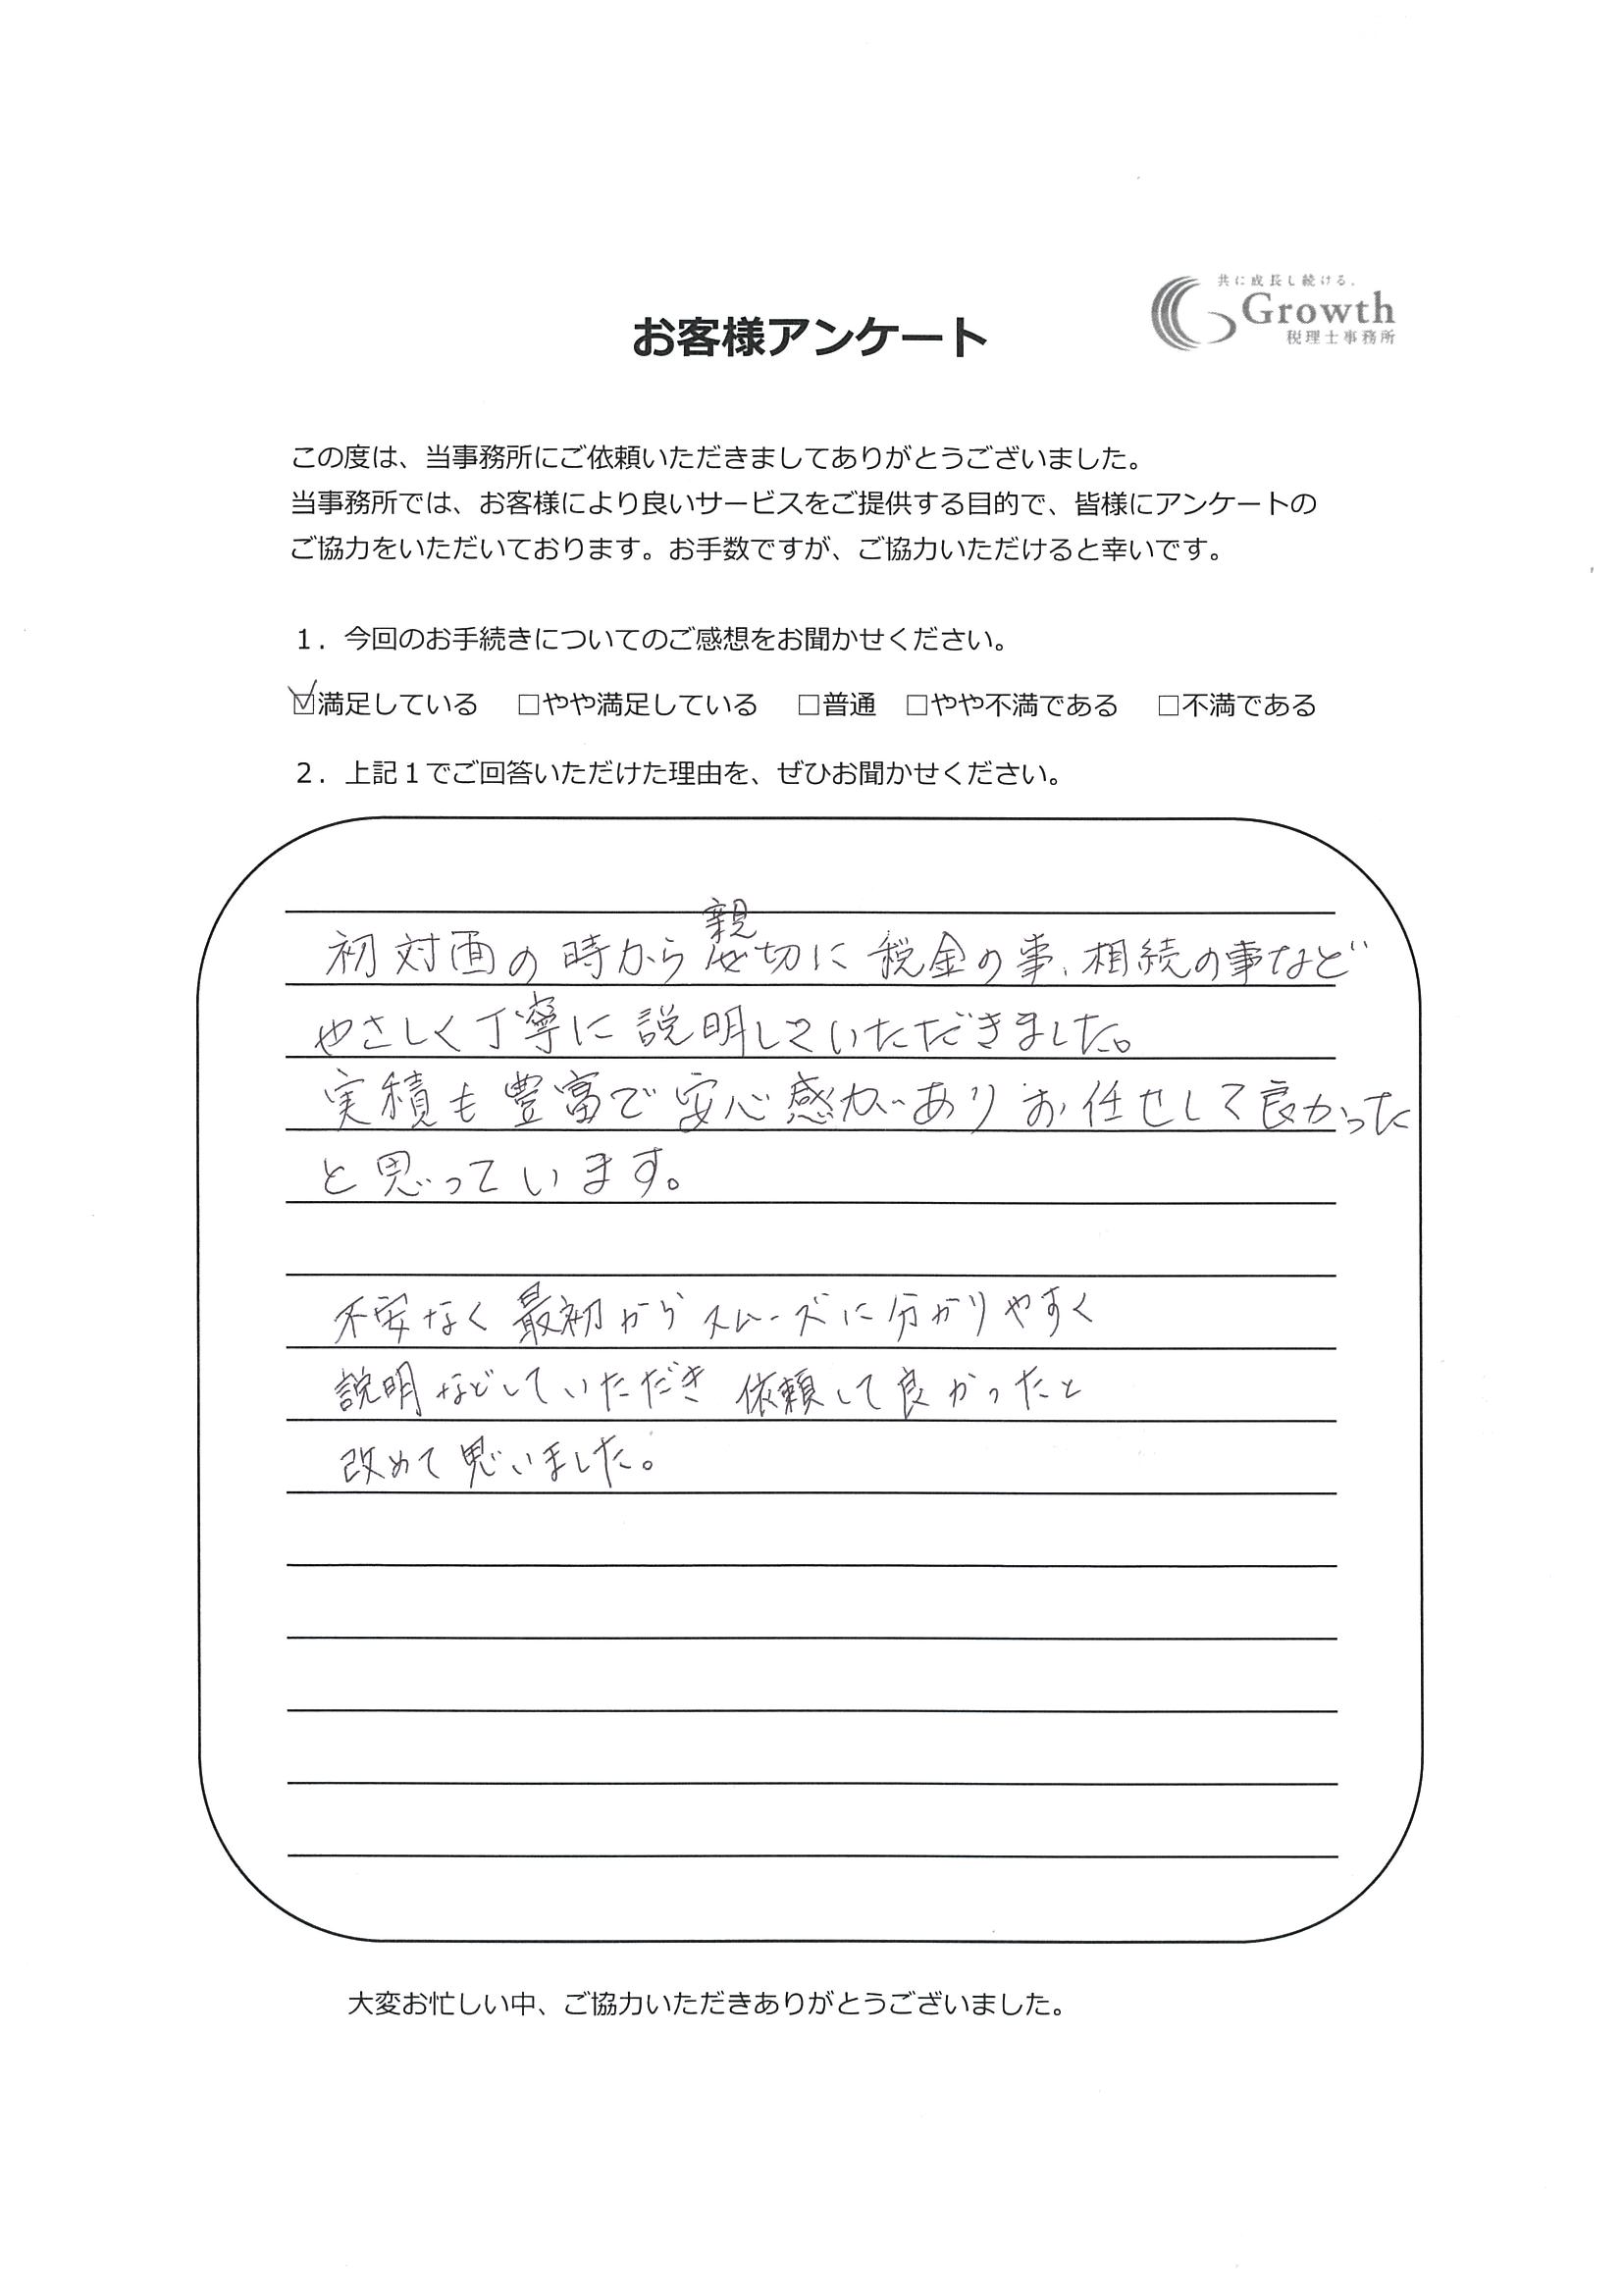 共に成長し続ける。
Growth
税理士事務所
お客様アンケート
この度は、当事務所にご依頼いただきましてありがとうございました。
当事務所では、お客様により良いサービスをご提供する目的で、皆様にアンケートの
ご協力をいただいております。お手数ですが、ご協力いただけると幸いです。
1．今回のお手続きについてのご感想をお聞かせください。
☑満足している □やや満足している □普通 □やや不満である □不満である
2．上記１でご回答いただけた理由を、ぜひお聞かせください。
初対面の時から親切に税金の事、相続の事など
やさしく丁寧に説明していただきました。
実積も豊富で安心感がありお任せして良かった
と思っています。
不安なく最初からスムーズに分かりやすく
説明などしていただき依頼して良かったと
改めて思いました。
大変お忙しい中、ご協力いただきありがとうございました。